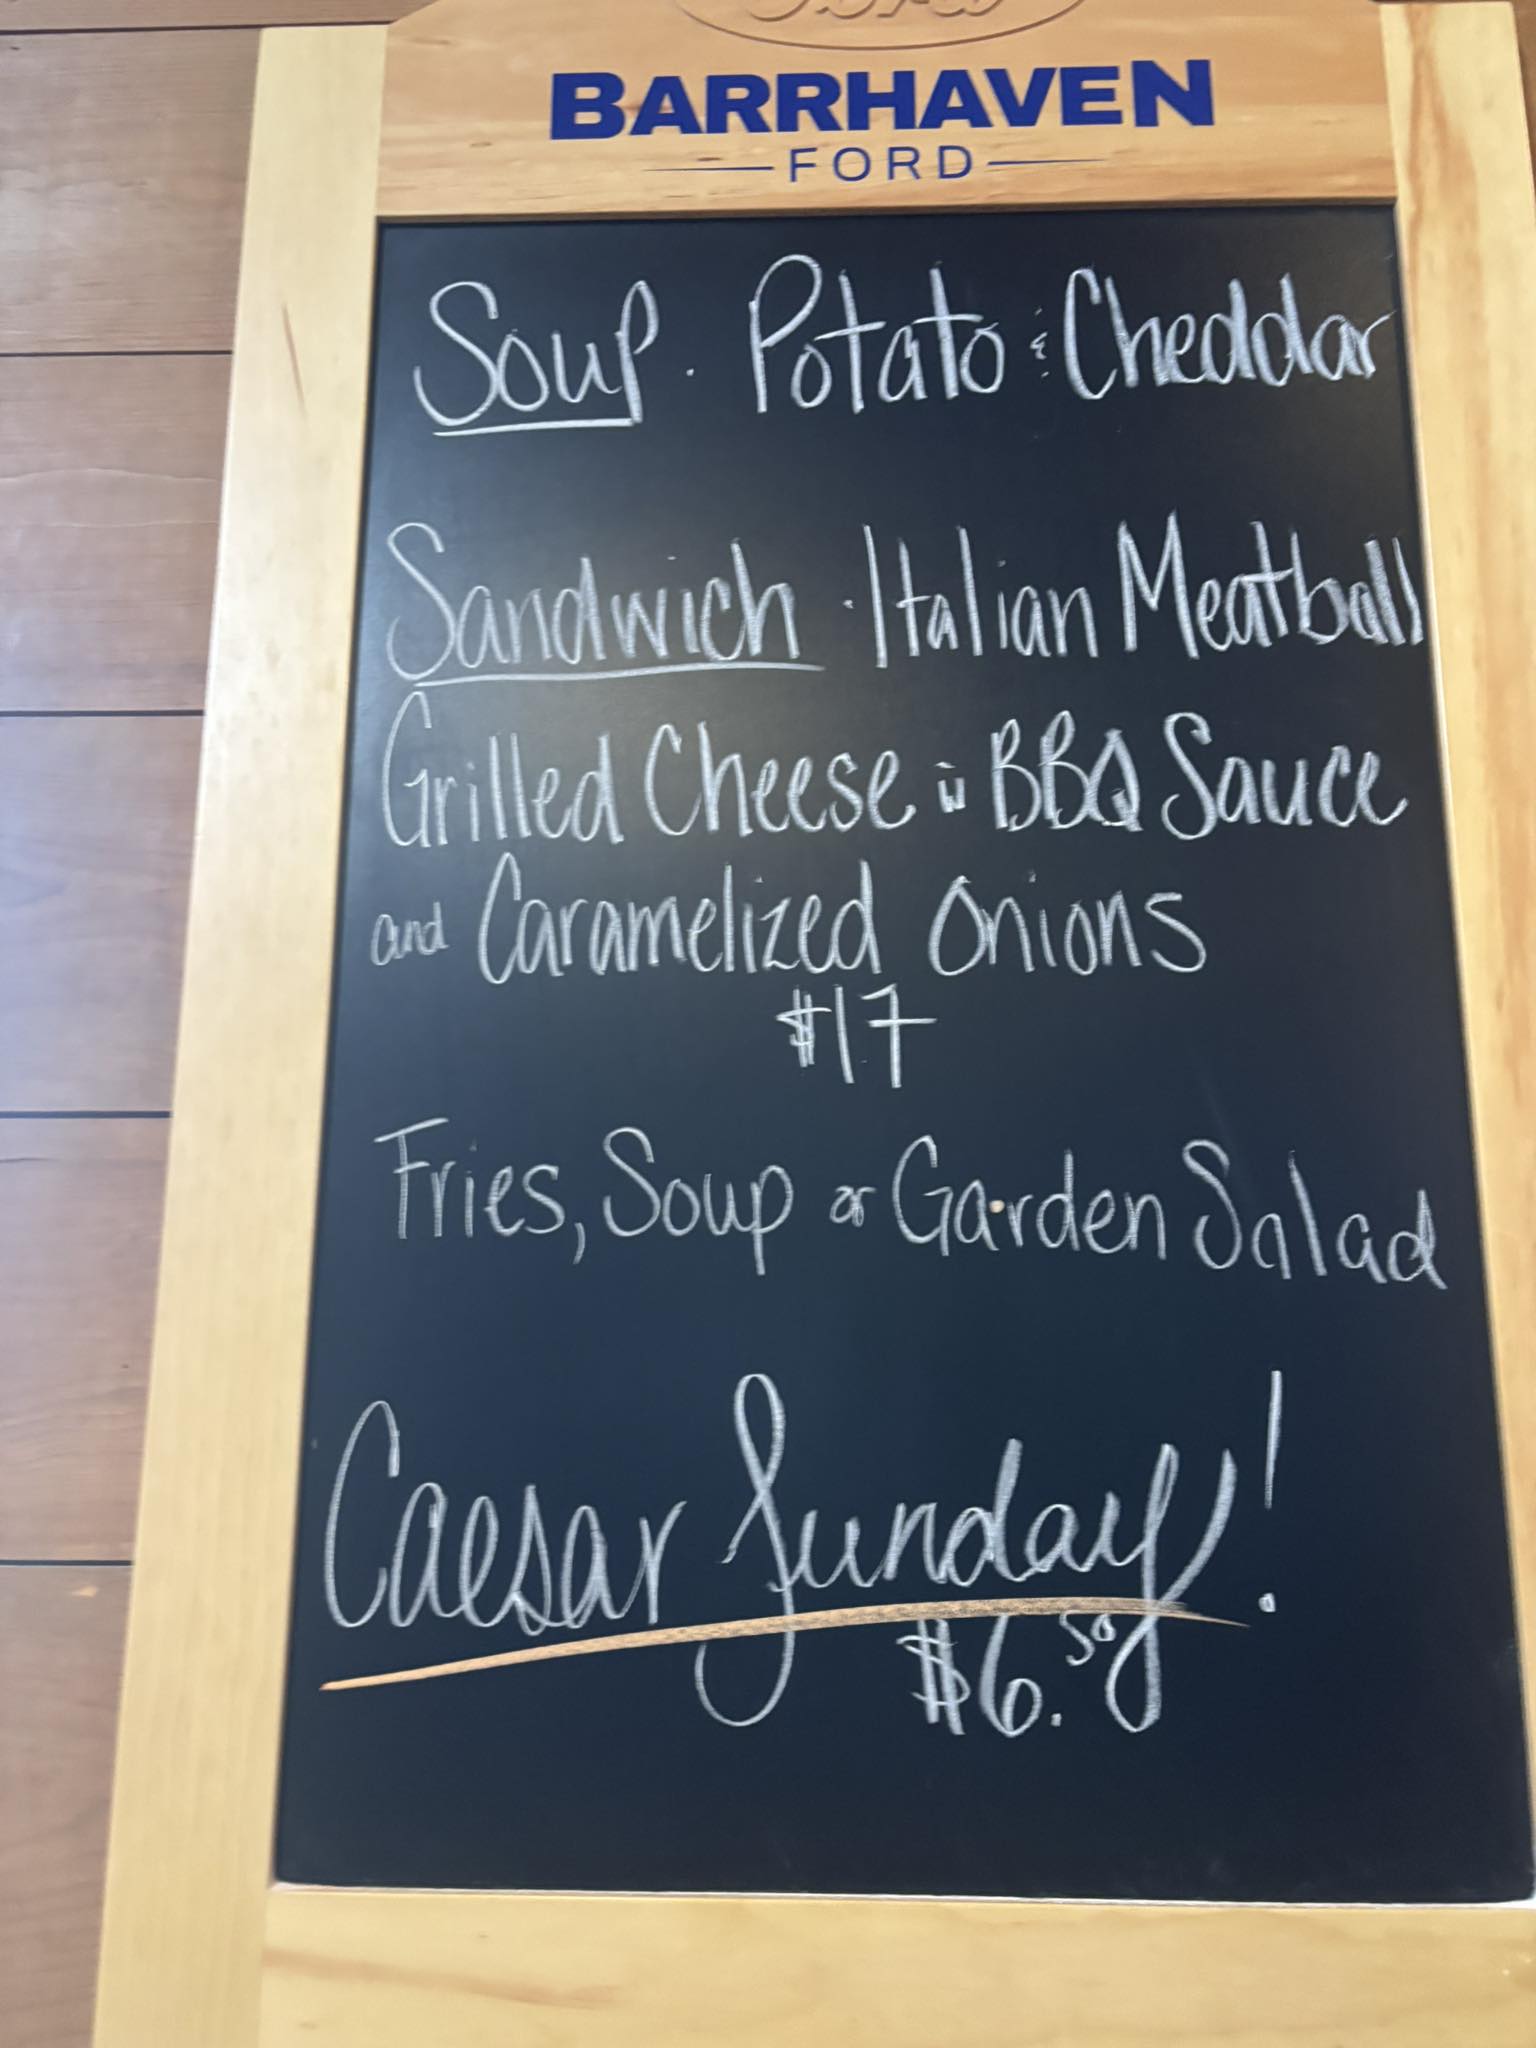 Ford
BARRHAVEN
FORD
Soup · Potato & Cheddar
Sandwich · Italian Meatball
Grilled Cheese w BBQ Sauce
and Caramelized Onions
$17
Fries, Soup or Garden Salad
Caesar Sunday!
$6.50